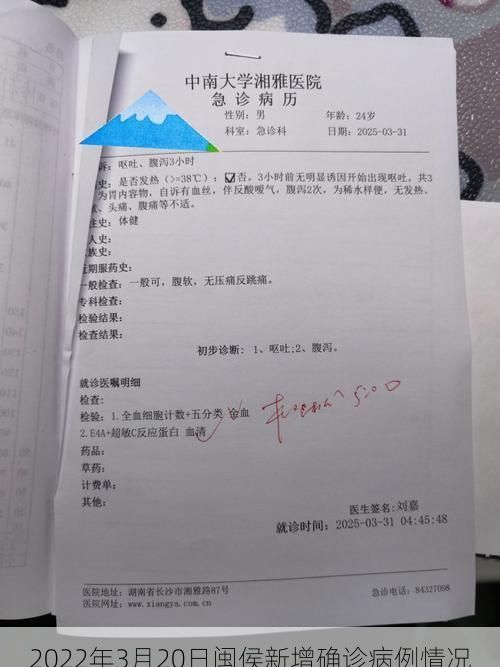 中南大学湘雅医院
急诊病历
性别：男 年龄：24岁
科室：急诊科 日期：2025-03-31
诉：呕吐、腹泻3小时
史：是否发热（>=38℃）：☑否。3小时前无明显诱因开始出现呕吐，共3
为胃内容物，自诉有血丝，伴反酸嗳气，腹泻2次，为稀水样便，无发热、
、头痛、腹痛等不适。
往史：体健
人史：
族史：
近期服药史：
一般检查：一般可，腹软，无压痛反跳痛。
专科检查：
检验结果：
检查结果：
初步诊断： 1、呕吐;2、腹泻。
就诊医嘱明细
检查：
检验：1.全血细胞计数+五分类 全血
2.E4A+超敏C反应蛋白 血清
药品：
草药：
计费单：
其他：
医生签名:刘嘉
就诊时间：2025-03-31 04:45:48
医院地址：湖南省长沙市湘雅路87号 急诊电话：84327098
医院网址：www.xiangya.com.cn
2022年3月20日闽侯新增确诊病例情况